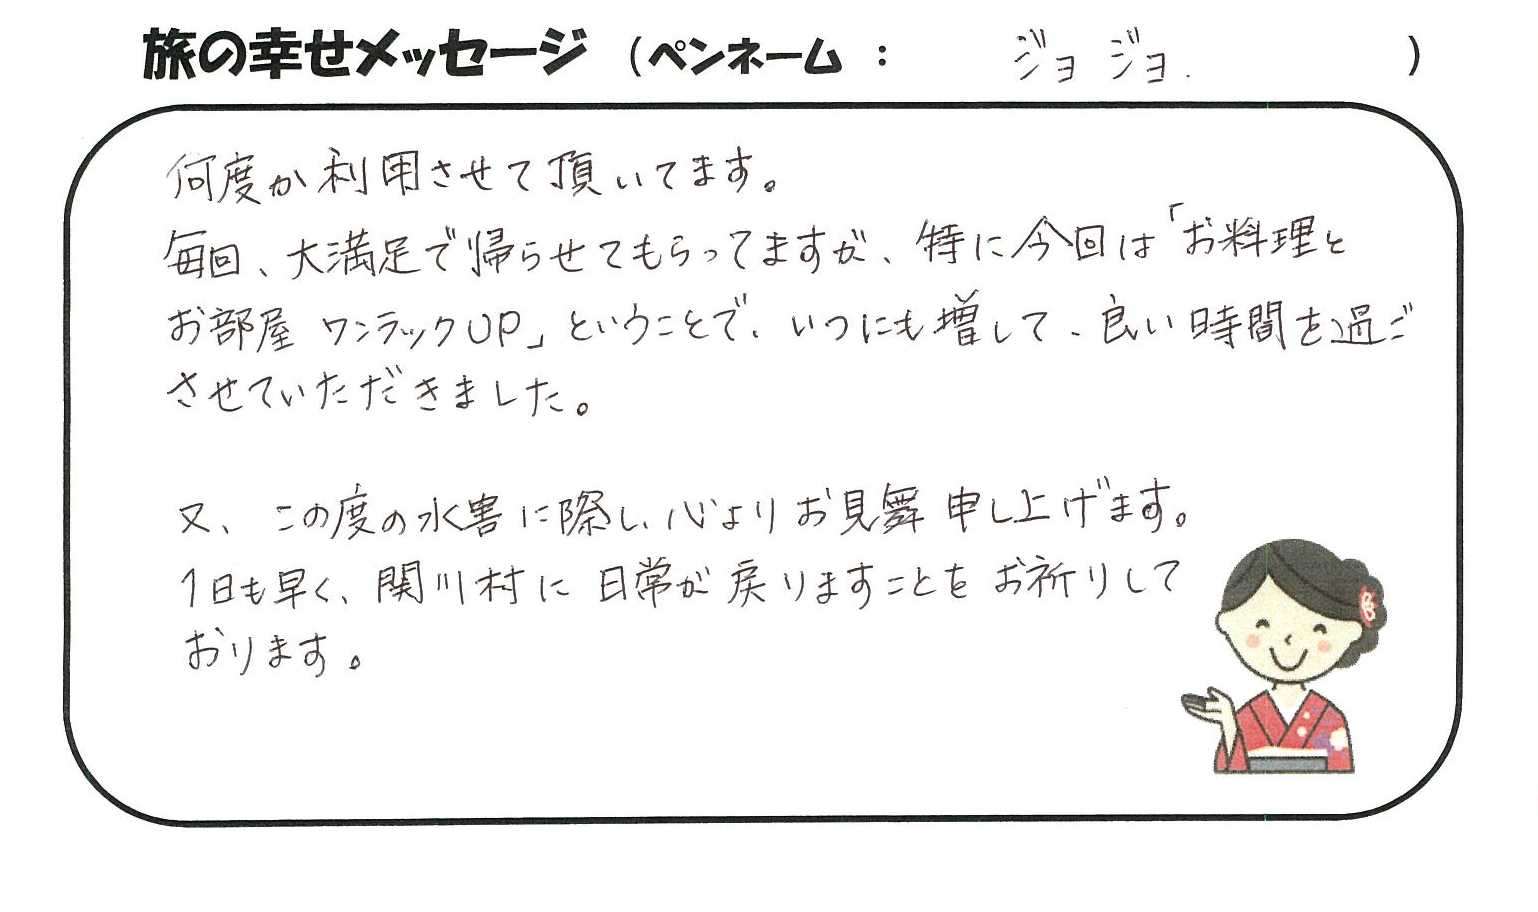 旅の幸せメッセージ （ペンネーム ： ジョジョ. ）
何度か利用させて頂いてます。
毎回、大満足で帰らせてもらってますが、特に今回は「お料理と
お部屋 ワンラックUP」ということで、いつにも増して、良い時間を過ご
させていただきました。
又、この度の水害に際し、心よりお見舞申し上げます。
1日も早く、関川村に日常が戻りますことをお祈りして
おります。